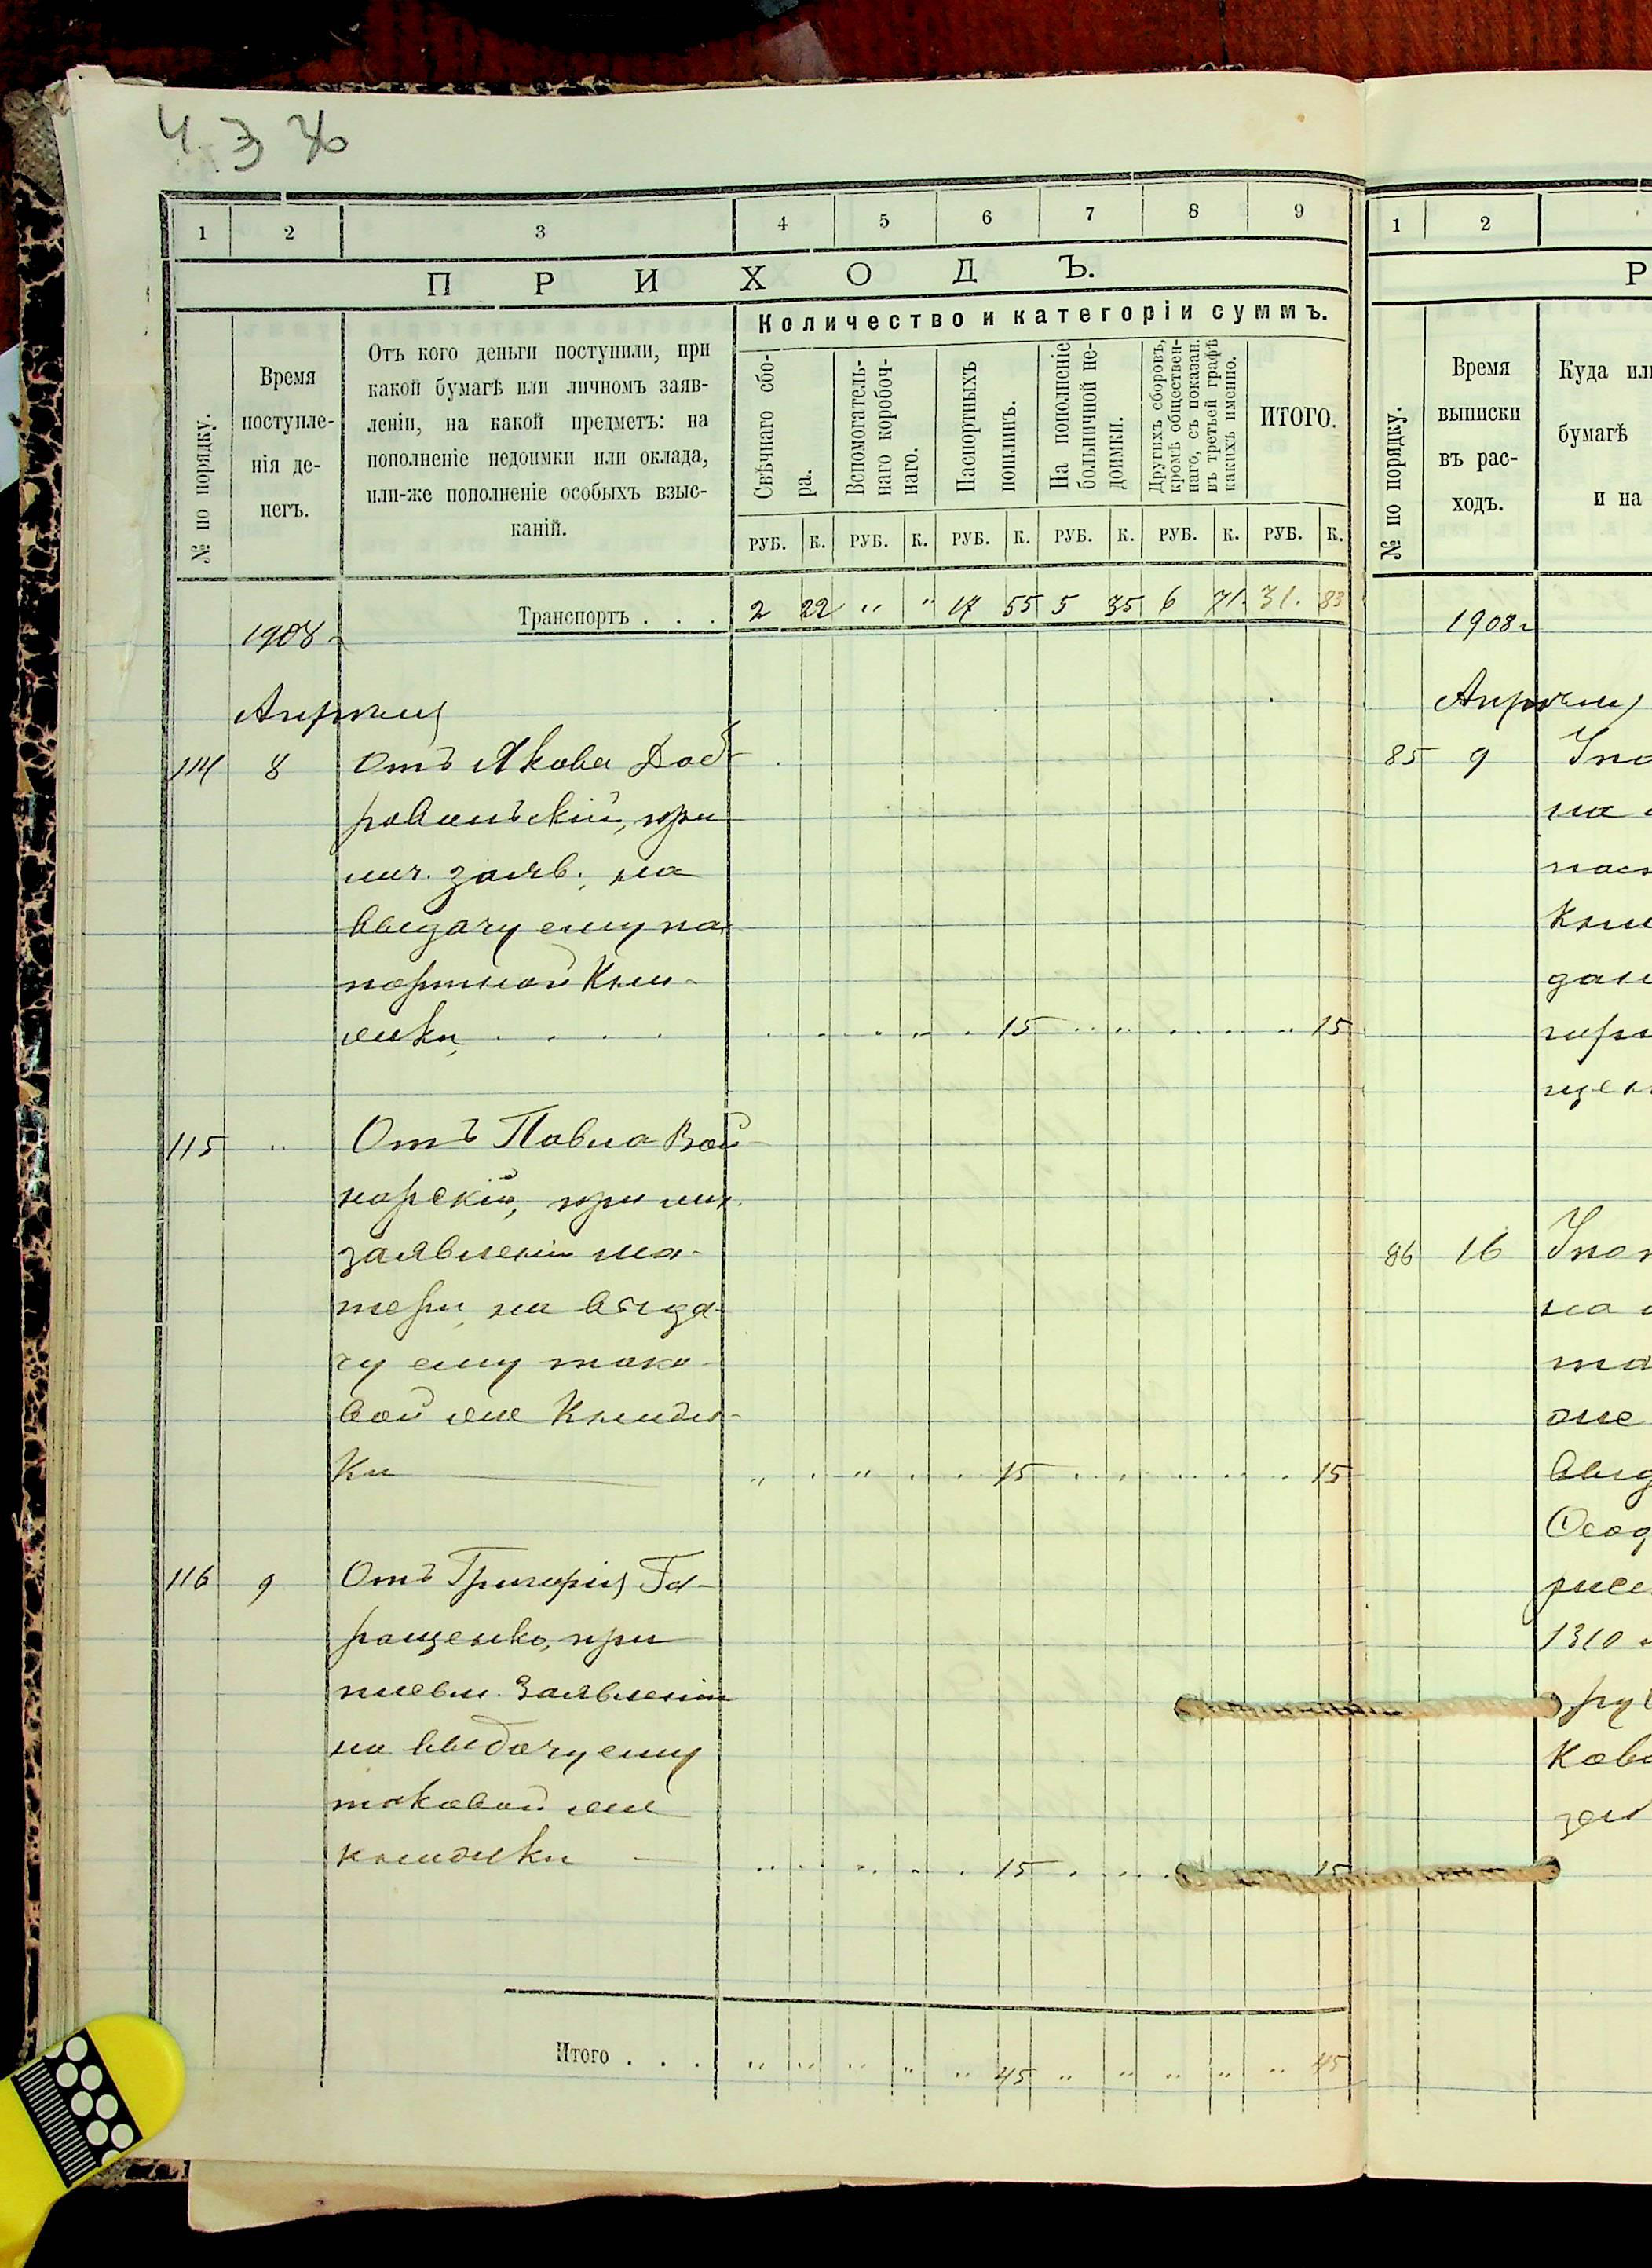 1 2 3 4 5 6 7 8 9
ПРИХОДЪ.
Количество и категоріи суммъ.
№ по порядку.
Время
поступле-
нія де-
негъ.
Отъ кого деньги поступили, при
какой бумагѣ или личномъ заяв-
леніи, на какой предметъ: на
пополненіе недоимки или оклада,
или-же пополненіе особыхъ взыс-
каній.
Свѣчнаго сбо-
ра.
Вспомогатель-
наго коробоч-
наго.
Паспортныхъ
пошлинъ.
На пополненіе
больничной не-
доимки.
Другихъ сборовъ,
кромѣ обществен-
наго, съ показан.
въ третьей графѣ
какихъ именно.
ИТОГО.
РУБ. К. РУБ. К. РУБ. К. РУБ. К. РУБ. К. РУБ. К.
Транспортъ . . . 2 22 " " 17 55 5 35 6 71 31. 83
1908 г
Апрѣля
114 8 Отъ Якова Доб-
ровольскій, при
лич. заяв., на
выдачу ему па
портной Кни-
жки, . . . . 15 15
115 " Отъ Павла Вой-
нарскій, при лич.
заявленіи ма-
тери, на выда-
чу ему тако-
вой же Книж-
Ки 15 15
116 9 Отъ Григорія Га-
ращенко, при
писвм. Заявленіи
на выдачу ему
таковой же
книжки 15 15
Итого . . . " " " " " 45 " " " " " 45
1 2
Р
№ по порядку.
Время
выписки
въ рас-
ходъ.
Куда ил
бумагѣ
и на
1908 г
Апрѣля
85 9
на
86 16
на
1310